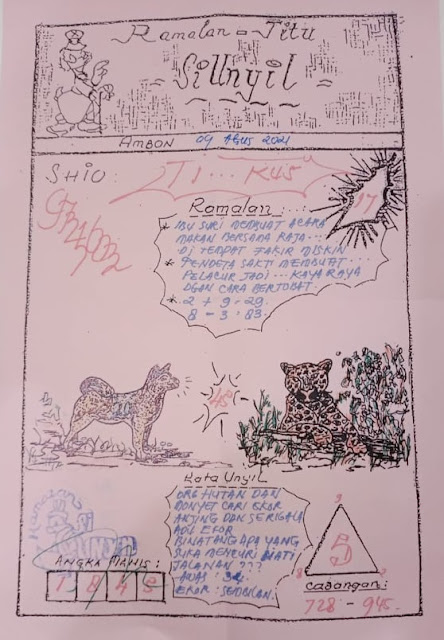 Ramalan - Jitu
Si Unyil
AMBON 09 AGUS 2021
SHIO: TI... KUS
17
Ramalan:
* IBU SURI MEMBUAT ACARA
MAKAN BERSAMA RAJA...
DI TEMPAT FAKIR MISKIN
* PENDETA SAKTI MEMBUAT...
PELACUR JADI... KAYA RAYA
DGAN CARA BERTOBAT.
* 2 + 9 = 29.
8 - 3 = 83.
Kata Unyil
ORG HUTAN DAN
MONYET CARI EKOR
ANJING DAN SERIGALA
ADU EKOR
BINATANG APA YANG
SUKA MENCURI DIATI
JALANAN ???
AWAS: 34
EKOR: SEMBILAN.
Ramalan
Si
UNYIL
ANGKA MANIS:
1 8 4 5
9
5
8
Cabangan:
728 - 945.